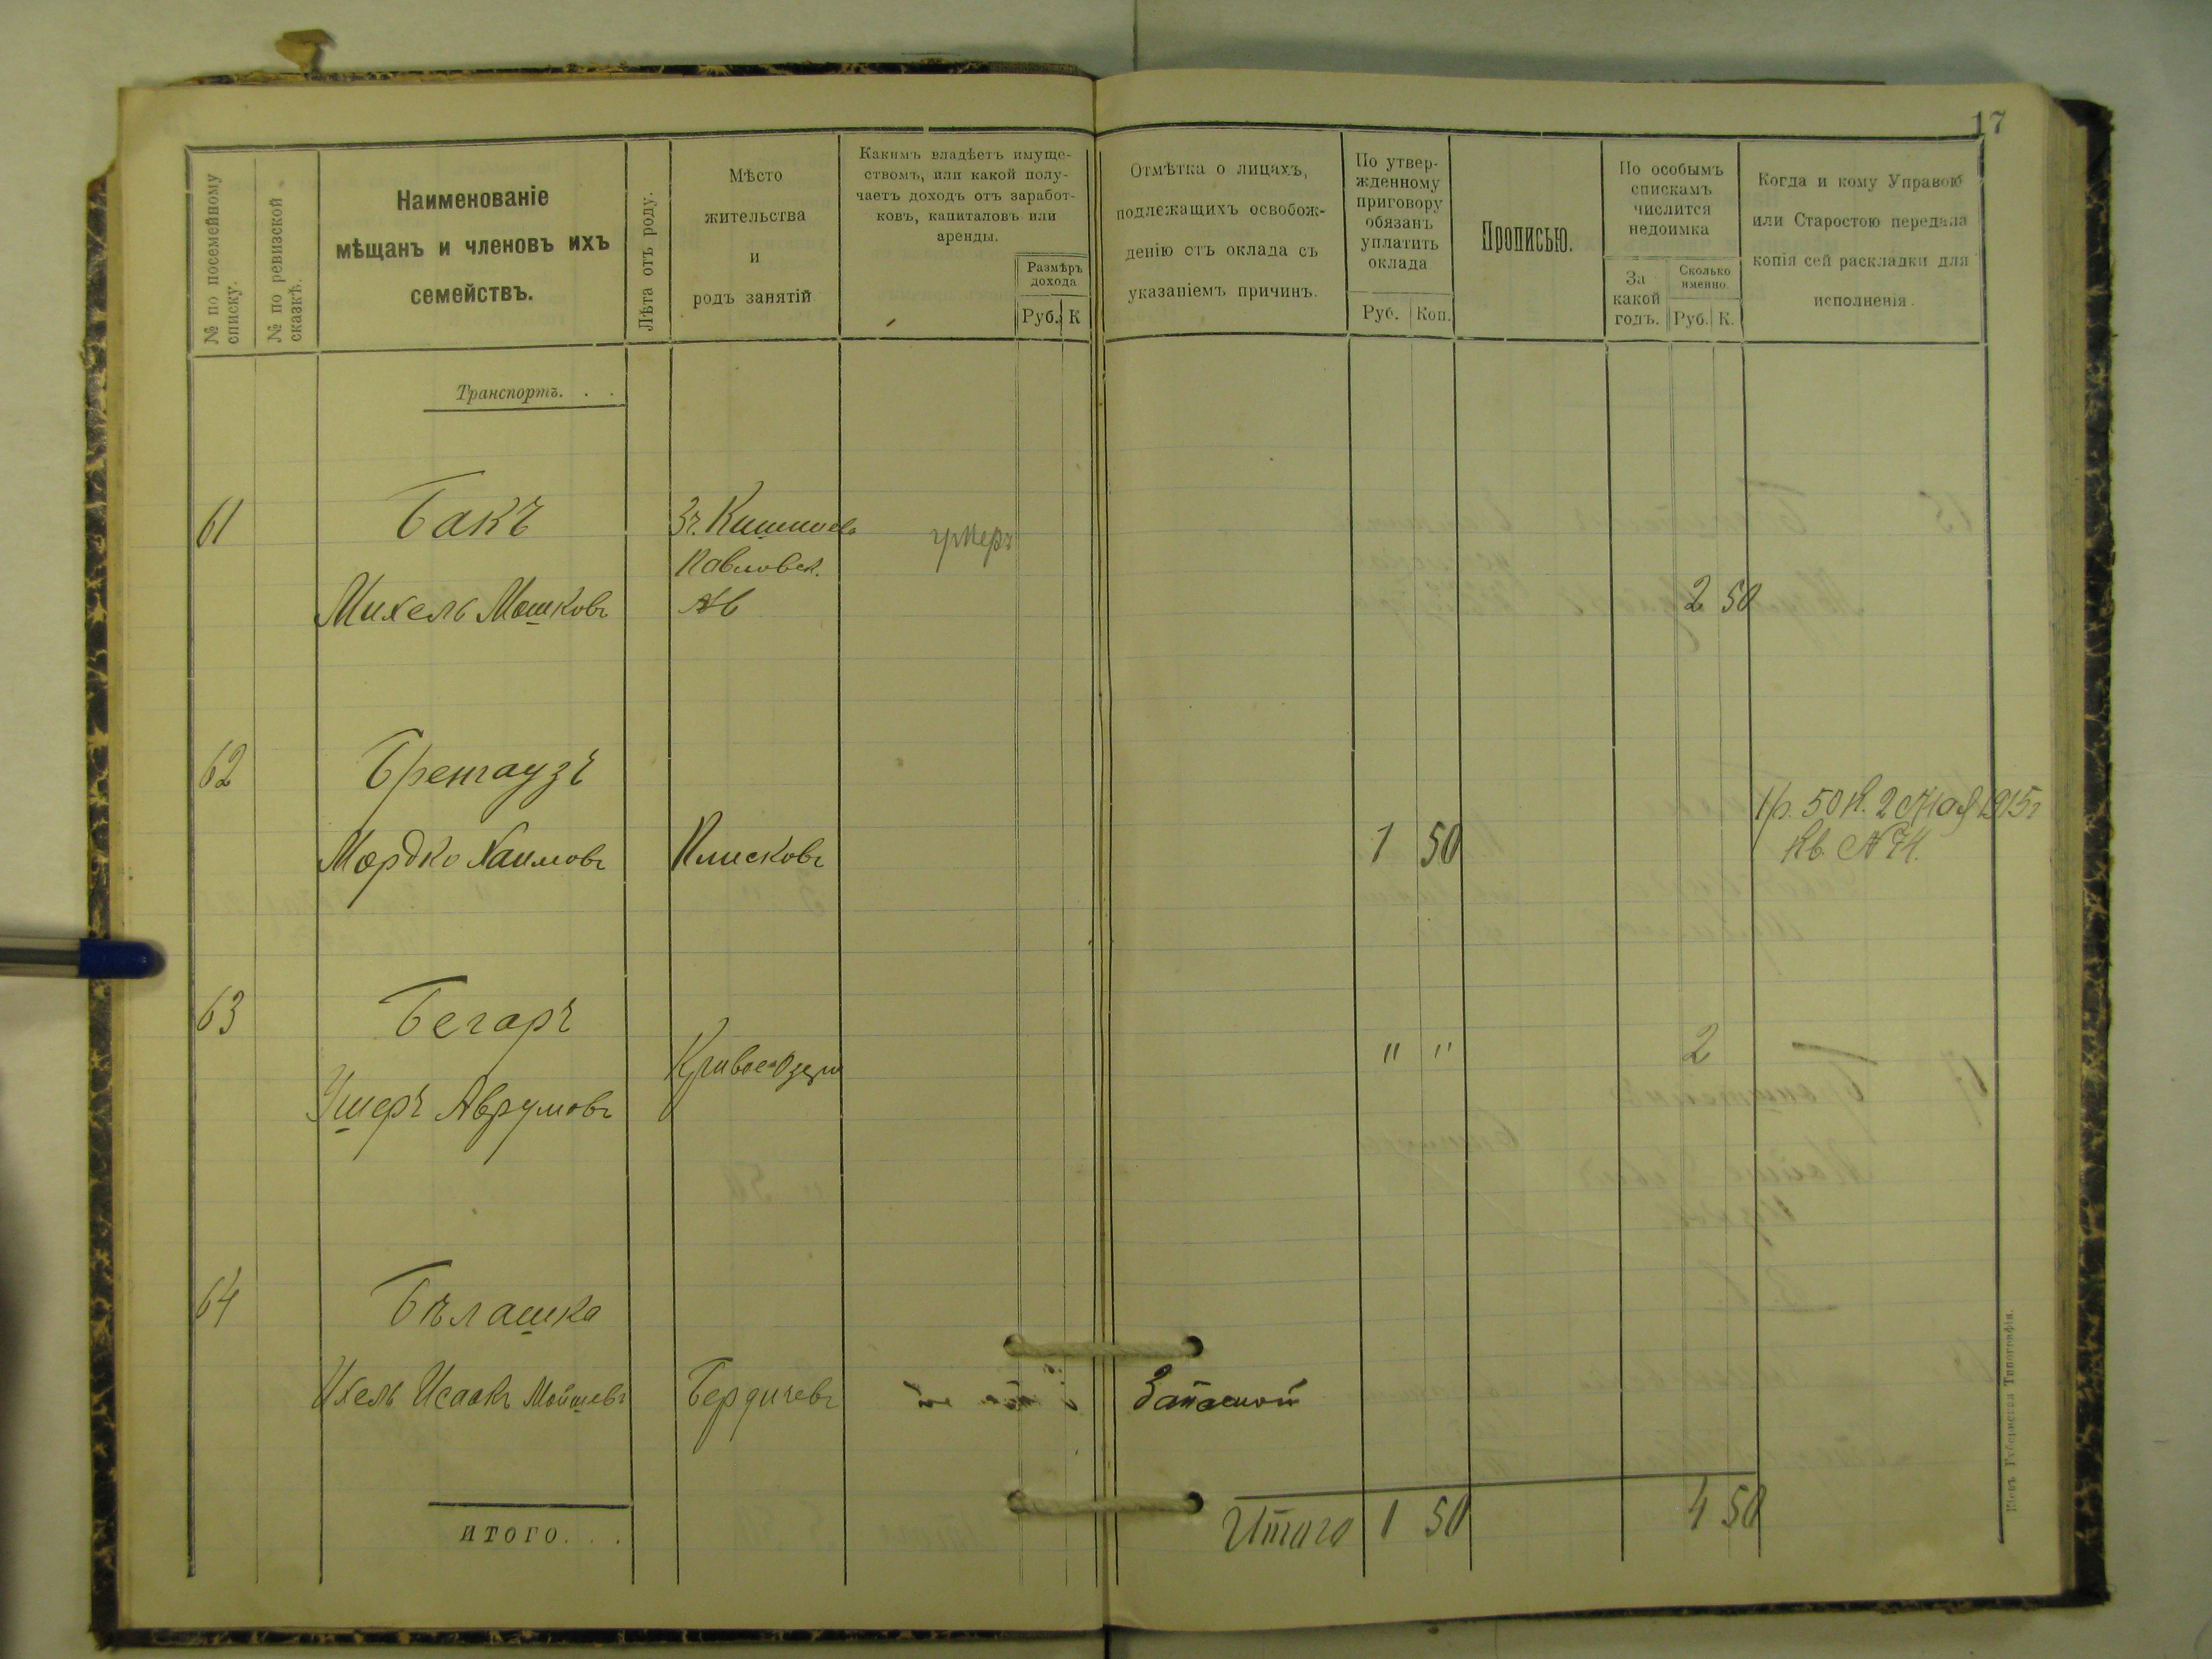 17
№ по посемейному
списку.
№ по ревизской
сказкѣ.
Наименованіе
мѣщанъ и членовъ ихъ
семействъ.
Лѣта отъ роду.
Мѣсто
жительства
и
родъ занятій
Какимъ владѣетъ имуще-
ствомъ, или какой полу-
чаетъ доходъ отъ заработ-
ковъ, капиталовъ или
аренды.
Размѣръ
дохода
Руб. К
Отмѣтка о лицахъ,
подлежащихъ освобож-
денію отъ оклада съ
указаніемъ причинъ.
По утвер-
жденному
приговору
обязанъ
уплатить
оклада
Руб. Коп.
Прописью.
По особымъ
спискамъ
числится
недоимка
За
какой
годъ.
Сколько
именно.
Руб. К.
Когда и кому Управою
или Старостою передана
копія сей раскладки для
исполненія.
Транспортъ. . .
61 Бакъ
Михель Мошковъ
Павловск.
умеръ
2 50
62 Бренгаузъ
Мордко Хаимовъ Плисковъ 1 50
1 р. 50 к. 2 Мая 1915 г
Кв. № 74.
63 Бегаръ
Ушеръ Аврумовъ
Кривое Озеро
" " 2
64 Бѣлашка
Ихель Исаакъ Мойшевъ Бердичевъ
Запасной
ИТОГО. . .
Итого 1 50 4 50
Кіевъ Губернская Типографія.